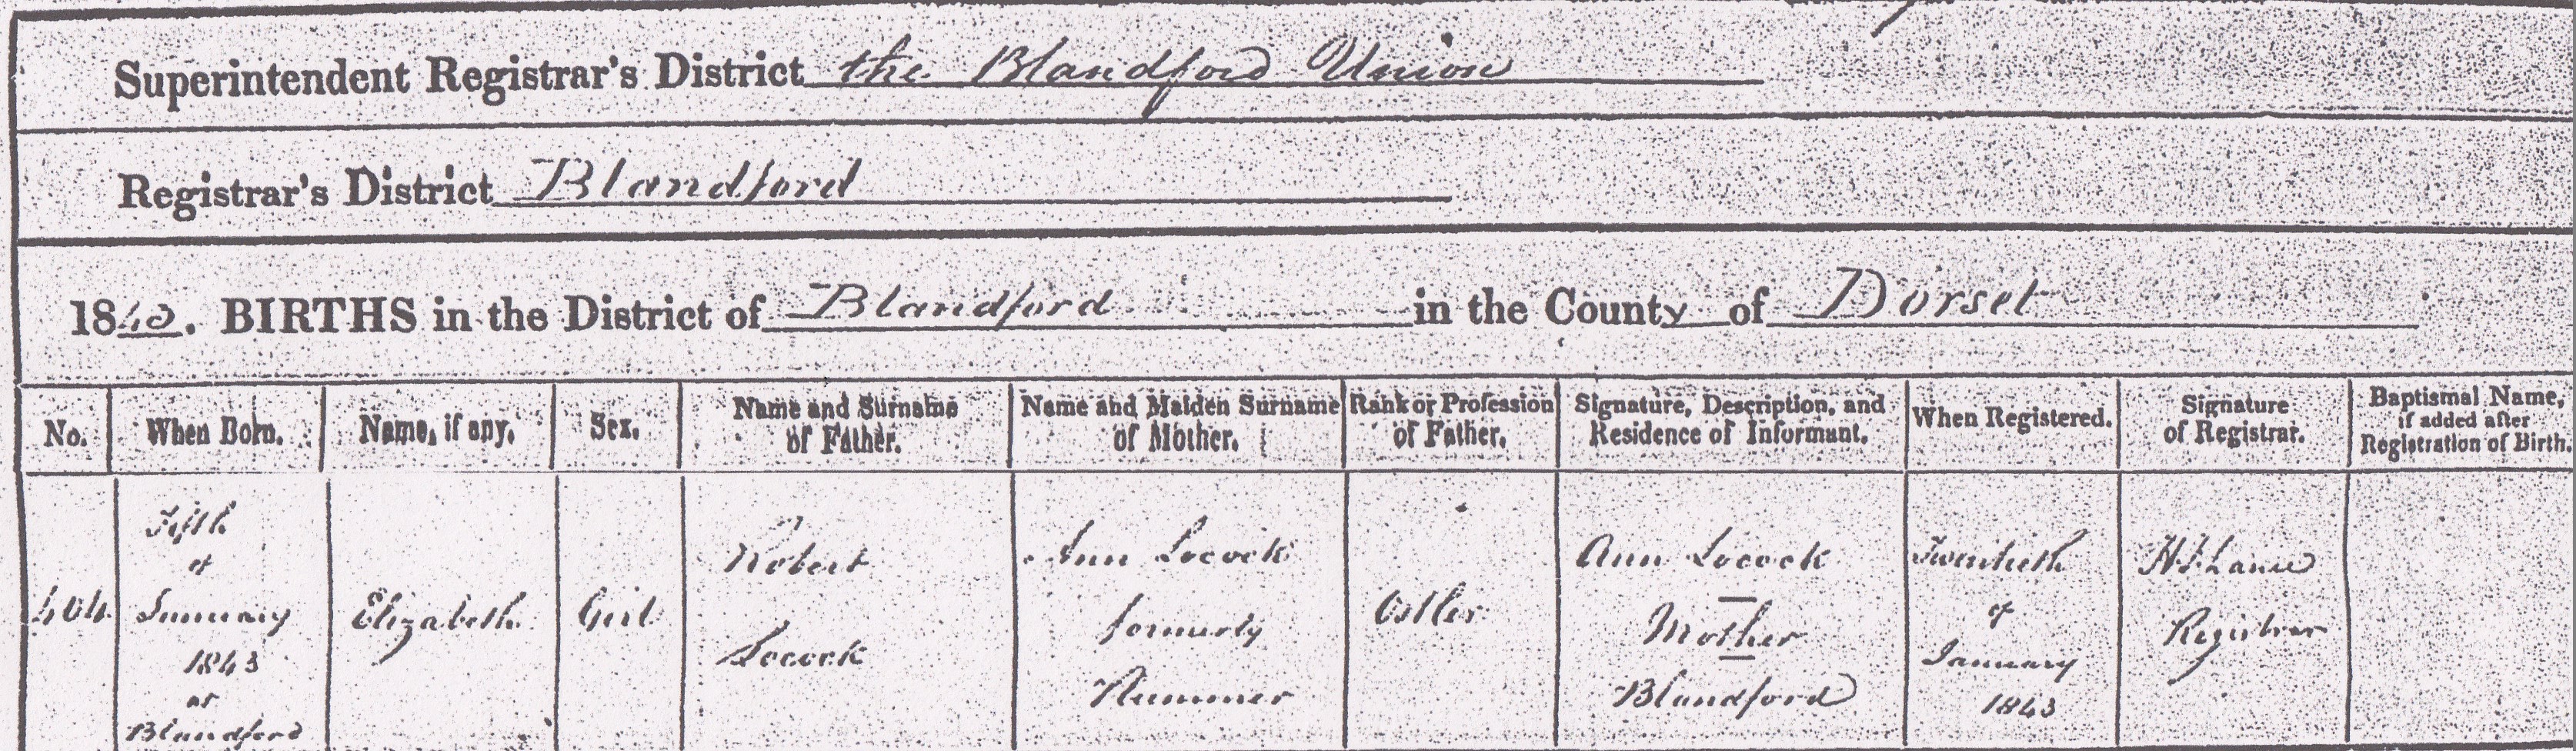 Superintendent Registrar's District the Blandford Union
Registrar's District Blandford
1843. BIRTHS in the District of Blandford in the County of Dorset
No.
When Born.
Name, if any.
Sex.
Name and Surname
of Father.
Name and Maiden Surname
of Mother.
Rank or Profession
of Father.
Signature, Description, and
Residence of Informant.
When Registered.
Signature
of Registrar.
Baptismal Name,
if added after
Registration of Birth.
404
Fifth
of
January
1843
at
Blandford
Elizabeth
Girl
Robert
Locock
Ann Locock
formerly
Ostler
Ann Locock
Mother
Blandford
Twentieth
of
January
1843
Registrar